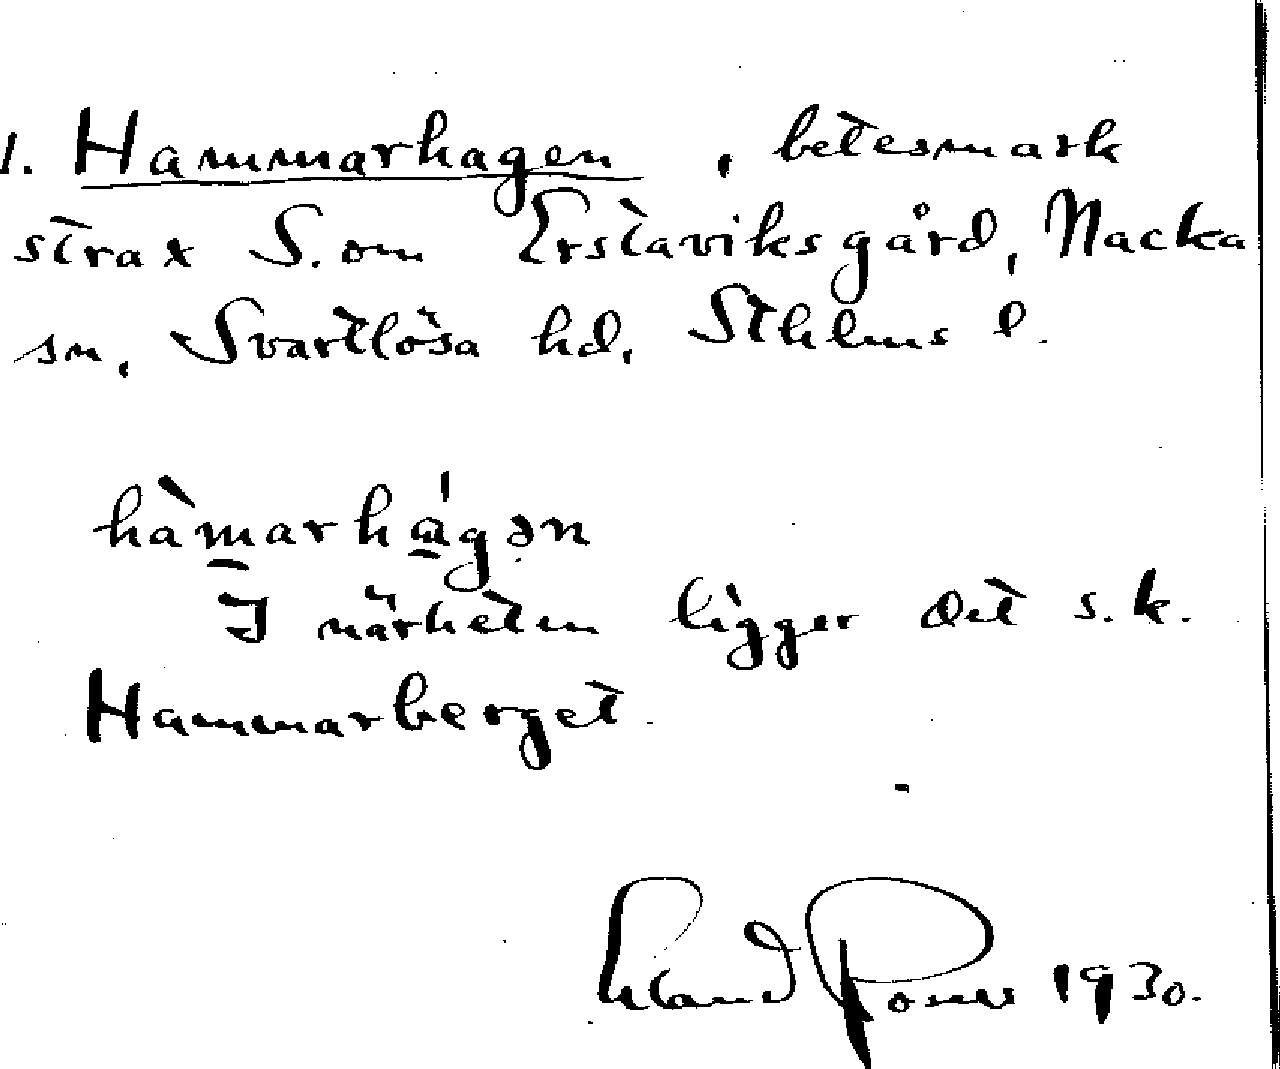 1. Hammarhagen, betesmark
strax S. om Erstaviks gård, Nacka
sn, Svartlösa hd, Sthlms l.
hàmarhágən
I närheten ligger det s.k.
Hammarberget.
Erland Rosell 1930.